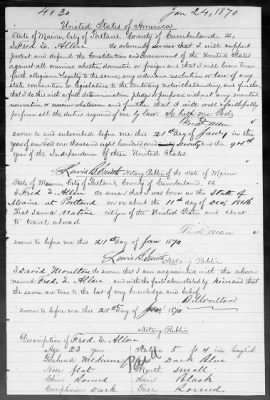 4130 Jan 24, 1870
United States of America
State of Maine, City of Portland, County of Cumberland, ss,
I Fred E. Allen do solemnly swear that I will support
protect and defend the Constitution and Government of the United States
against all enemies whether domestic or foreign and that I will bear true
faith allegiance loyalty to the same, any ordinance resolution or law of any
state convention or legislature to the contrary notwithstanding and further
that I do this with a full determination pledge & purpose without any mental
reservation or evasion whatsoever and further that I will well & faithfully
perform all the duties required of me by law. So help me God,
sworn to and subscribed before me this 21st Day of Jan'y in the
year of our Lord one thousand eight hundred and Seventy & the
of the Independence of these United States.
Notary Public of the state of Maine
State of Maine City of Portland, County of Cumberland,
I Fred E. Allen do swear that I was born in the State of
Maine at Portland on or about the 11th day of Dec 1846
That I am a Native citizen of the United States and about
to travel abroad
sworn to before me this 21st Day of Jan 1870
Notary Public
I David Moulton do swear that I am acquainted with the above
named Fred E. Allen and with the facts above stated by him and that
the same are true to the best of my knowledge and belief.
D. Moulton
sworn to before me this 21st day of 1870
Notary Public
Description of Fred E. Allen
Age 23 year 5 f 4 in English
Forehead Medium Eyes Dark Blue
Nose flat Mouth Small
Chin Round Hair Black
Complexion Dark Face Round.